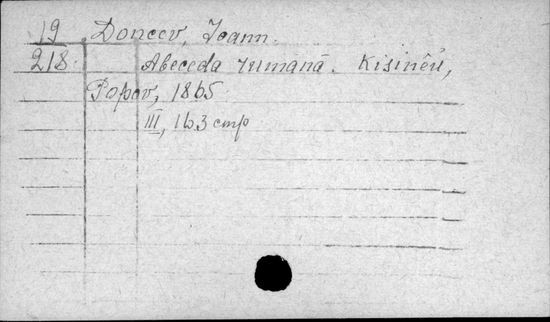 19 Doncev, Ioann.
218 Abeceda rumană. Kisinĕu,
Popov, 1865
III, 163 cmp